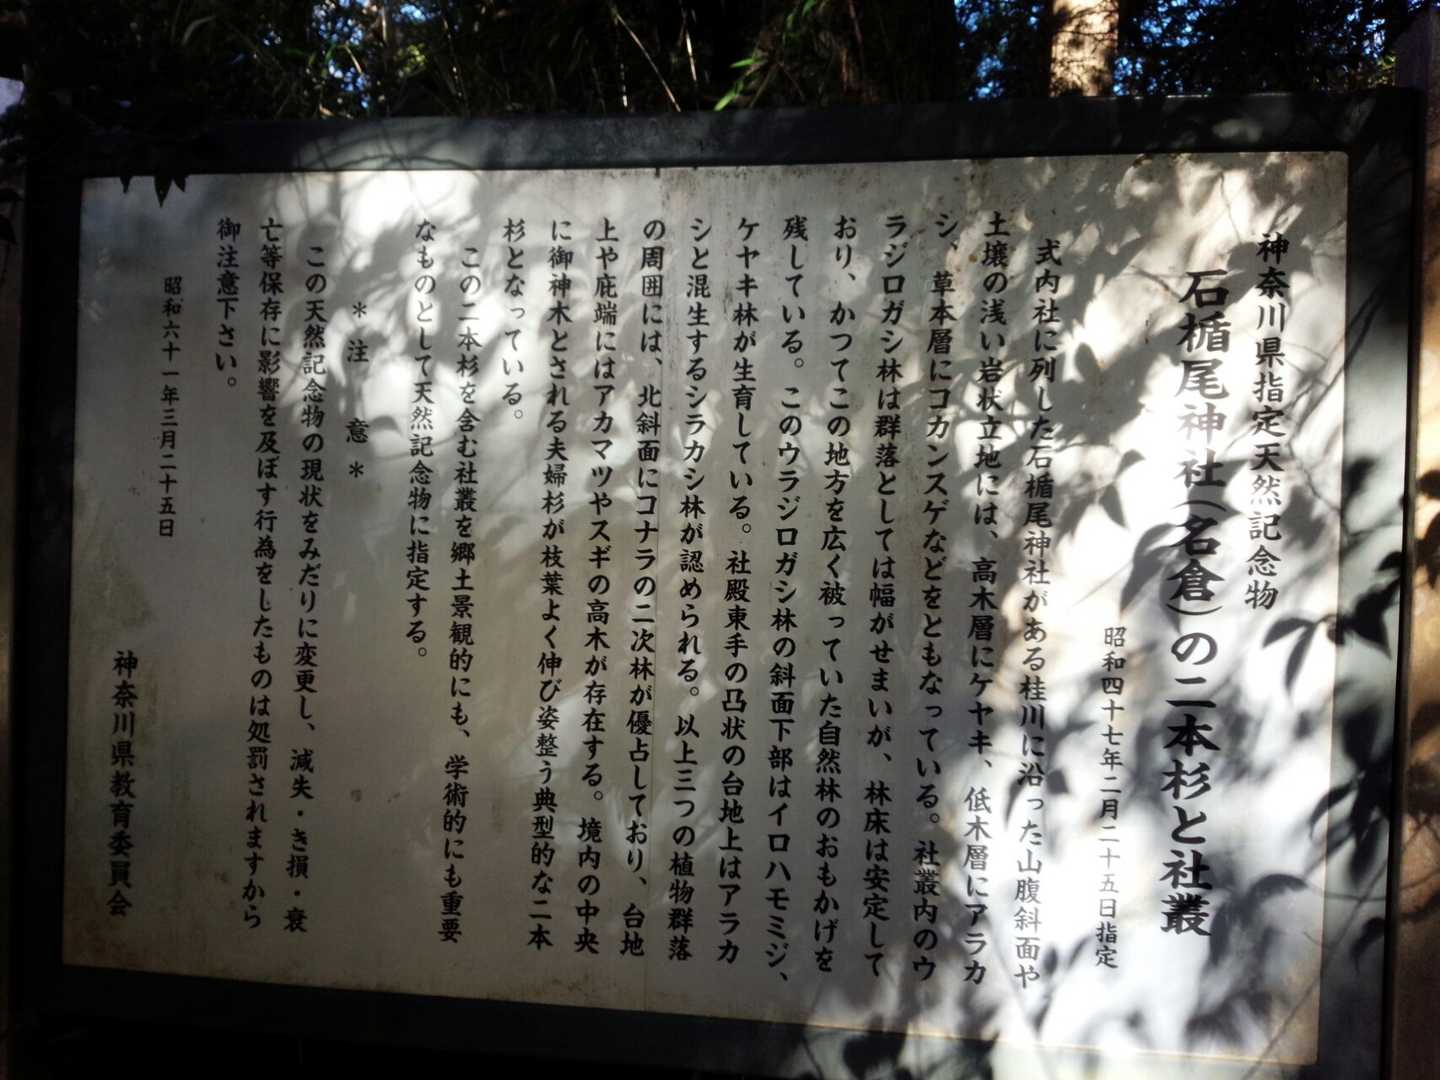 神奈川県指定天然記念物
石楯尾神社(名倉)の二本杉と社叢
昭和四十七年二月二十五日指定
式内社に列した石楯尾神社がある桂川に沿った山腹斜面や
土壌の浅い岩状立地には、高木層にケヤキ、低木層にアラカ
シ、草本層にコカンスゲなどをともなっている。社叢内のウ
ラジロガシ林は群落としては幅がせまいが、林床は安定して
おり、かつてこの地方を広く被っていた自然林のおもかげを
残している。このウラジロガシ林の斜面下部はイロハモミジ、
ケヤキ林が生育している。社殿東手の凸状の台地上はアラカ
シと混生するシラカシ林が認められる。以上三つの植物群落
の周囲には、北斜面にコナラの二次林が優占しており、台地
上や庇端にはアカマツやスギの高木が存在する。境内の中央
に御神木とされる夫婦杉が枝葉よく伸び姿整う典型的な二本
杉となっている。
この二本杉を含む社叢を郷土景観的にも、学術的にも重要
なものとして天然記念物に指定する。
＊注　意＊
この天然記念物の現状をみだりに変更し、滅失・き損・衰
亡等保存に影響を及ぼす行為をしたものは処罰されますから
御注意下さい。
昭和六十一年三月二十五日
神奈川県教育委員会